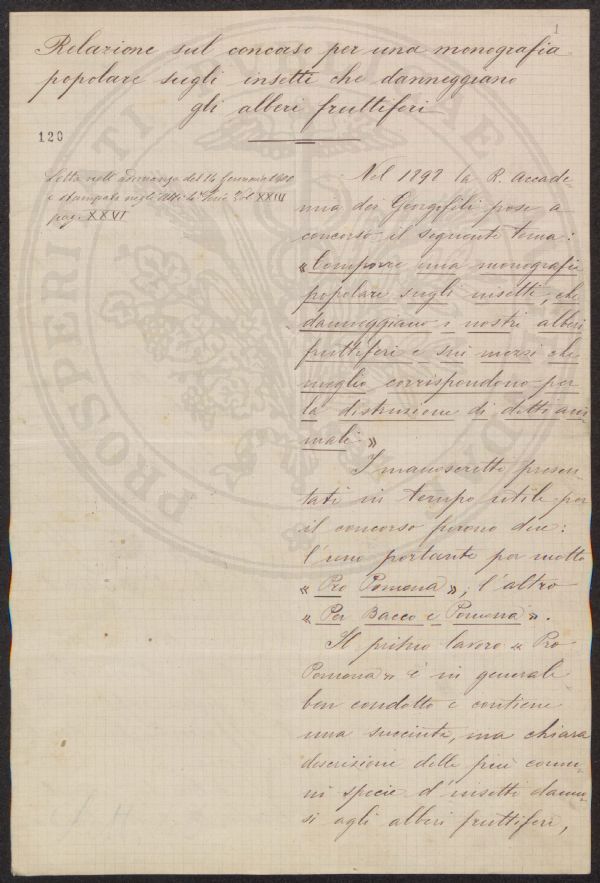 1
Relazione sul concorso per una monografia
popolare sugli insetti che danneggiano
gli alberi fruttiferi
120
Letta nell'adunanza del 14 Gennaio 1900
e stampata negli Atti la Serie Vol XXIII
pag. XXVI
Nel 1898 la R. Accade-
mia dei Georgofili pose a
concorso il seguente tema:
« Comporre una monografia
popolare sugli insetti, che
danneggiano i nostri alberi
fruttiferi e sui mezzi che
meglio corrispondono per
la distruzione di detti ani-
mali »
I manoscritti presen-
tati in tempo utile per
il concorso furono due:
l'uno portante per motto
« Pro Pomona », l'altro
« Per Bacco e Pomona ».
Il primo lavoro « Pro
Pomona » è in generale
ben condotto e contiene
una succinta, ma chiara
descrizione delle più comu-
ni specie d'insetti danno-
si agli alberi fruttiferi,
PROSPERITATI PUBLICAE